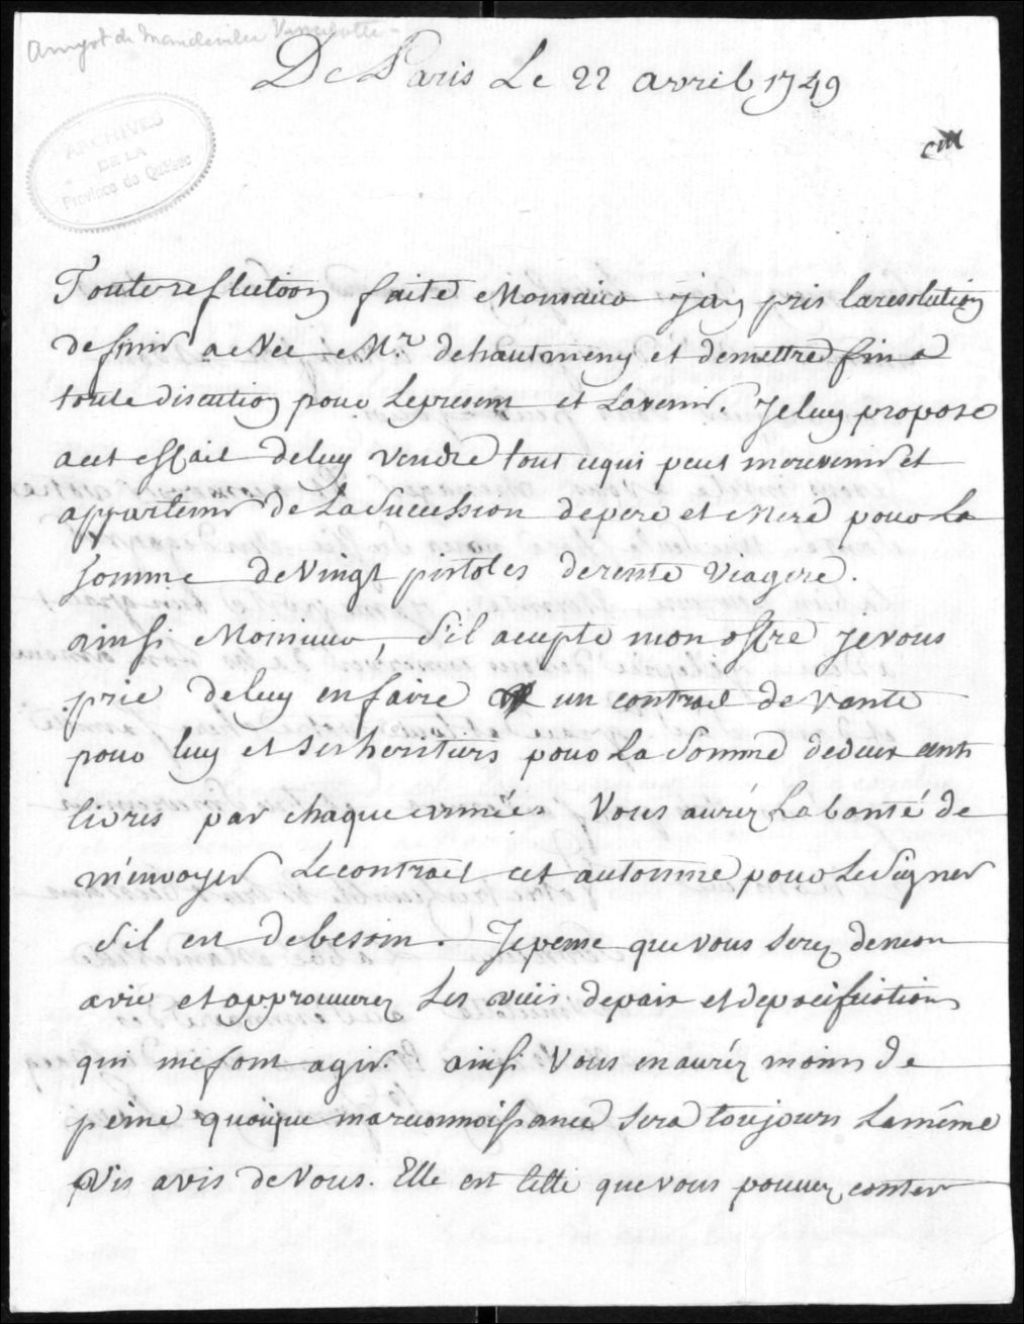 Amyot de
De Paris Le 22 avril 1749
ARCHIVES
DE LA
Province de Québec
Toute reflection faite Monsieur jay pris la resolution
de finir avec Mr. dehautmeny et demettre fin a
toute discution pour Lepresent et Lavenir. Jeluy propose
acet effait deluy vendre tout cequi peut merevenir et
appartenir de La Succession depere et Mere pour La
Somme deVingt pistoles derente viagere.
ainsi Monsieur, S'il acepte mon offre jevous
prie deluy enfaire un contrat de vante
pour luy et Ses heritiers pour La Somme dedeux cents
livres par chaque années Vous auréz La bonté de
m'envoyer Lecontract cet automne pour LeSigner
S'il en debesoin. Jepense que vous Serez demon
avis et approuverez Les vuës depaix et depacification
qui mefont agir. ainsi Vous enauréz moins de
peine quoique mareconnoissance Sera toujours Lamême
Vis avis deVous. Elle est telle que vous pouvez conter